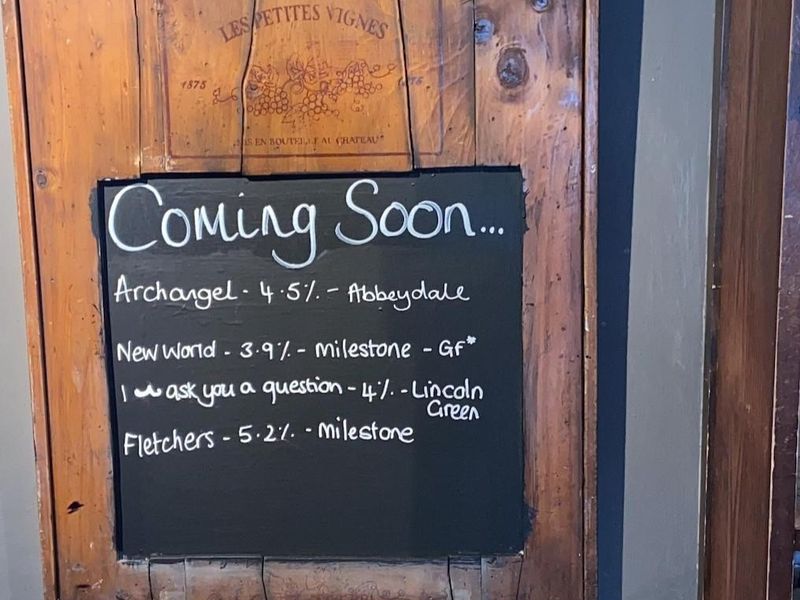 LES PETITES VIGNES
1875 1875
MIS EN BOUTEILLE AU CHATEAU
Coming Soon...
Archangel - 4.5% - Abbeydale
New World - 3.9% - Milestone - GF*
I ask you a question - 4% - Lincoln
Green
Fletchers - 5.2% - Milestone